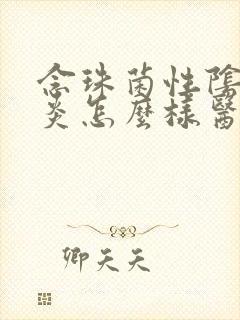 念珠菌性陰
炎怎麼樣醫
卿天天